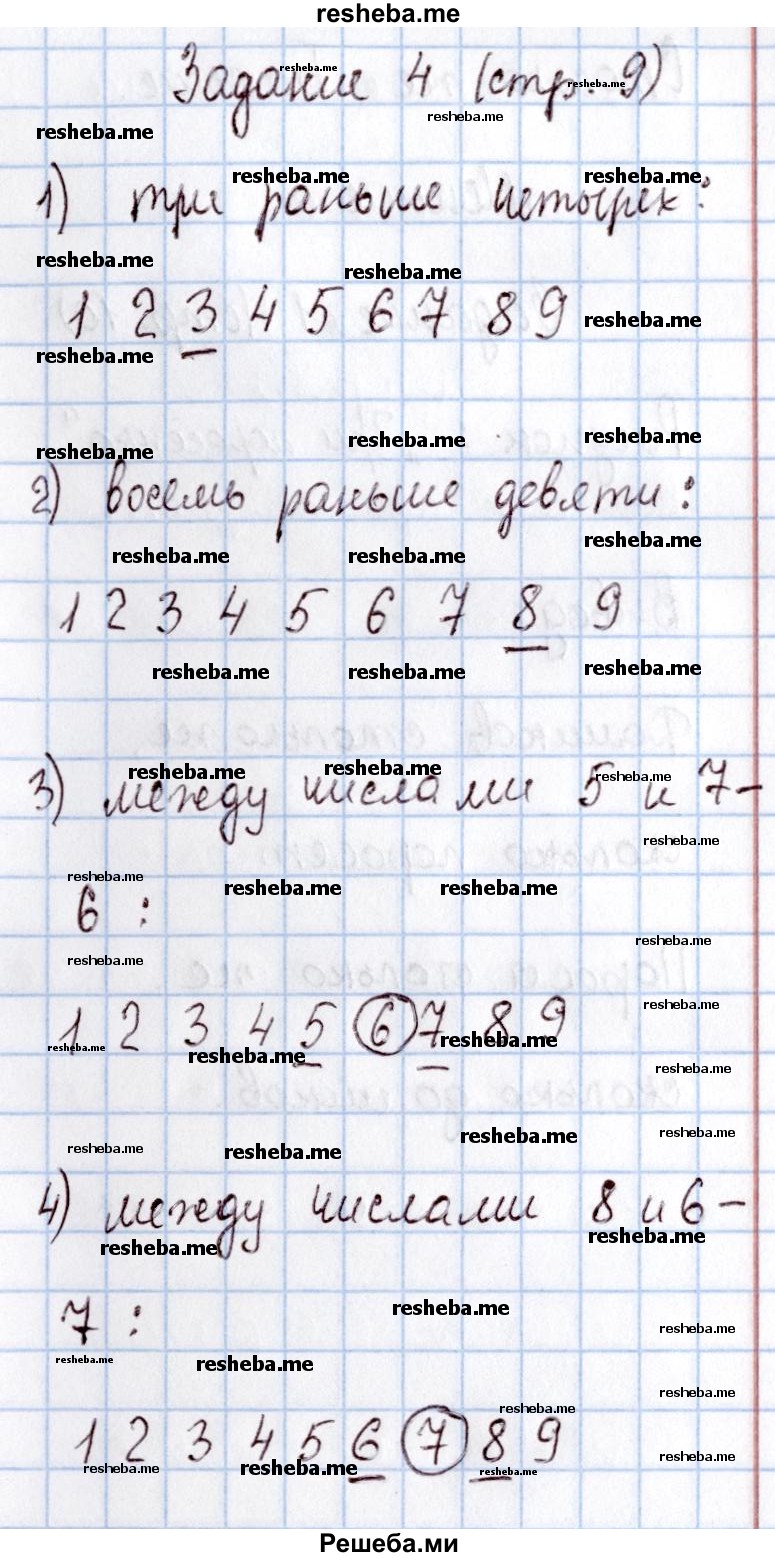 resheba.me
Задание 4 (стр. 9)
1) три раньше четырех:
1 2 3 4 5 6 7 8 9
2) восемь раньше девяти:
1 2 3 4 5 6 7 8 9
3) между числами 5 и 7 –
6 :
1 2 3 4 5 6 7 8 9
4) между числами 8 и 6 –
7 :
1 2 3 4 5 6 7 8 9
Решеба.ми